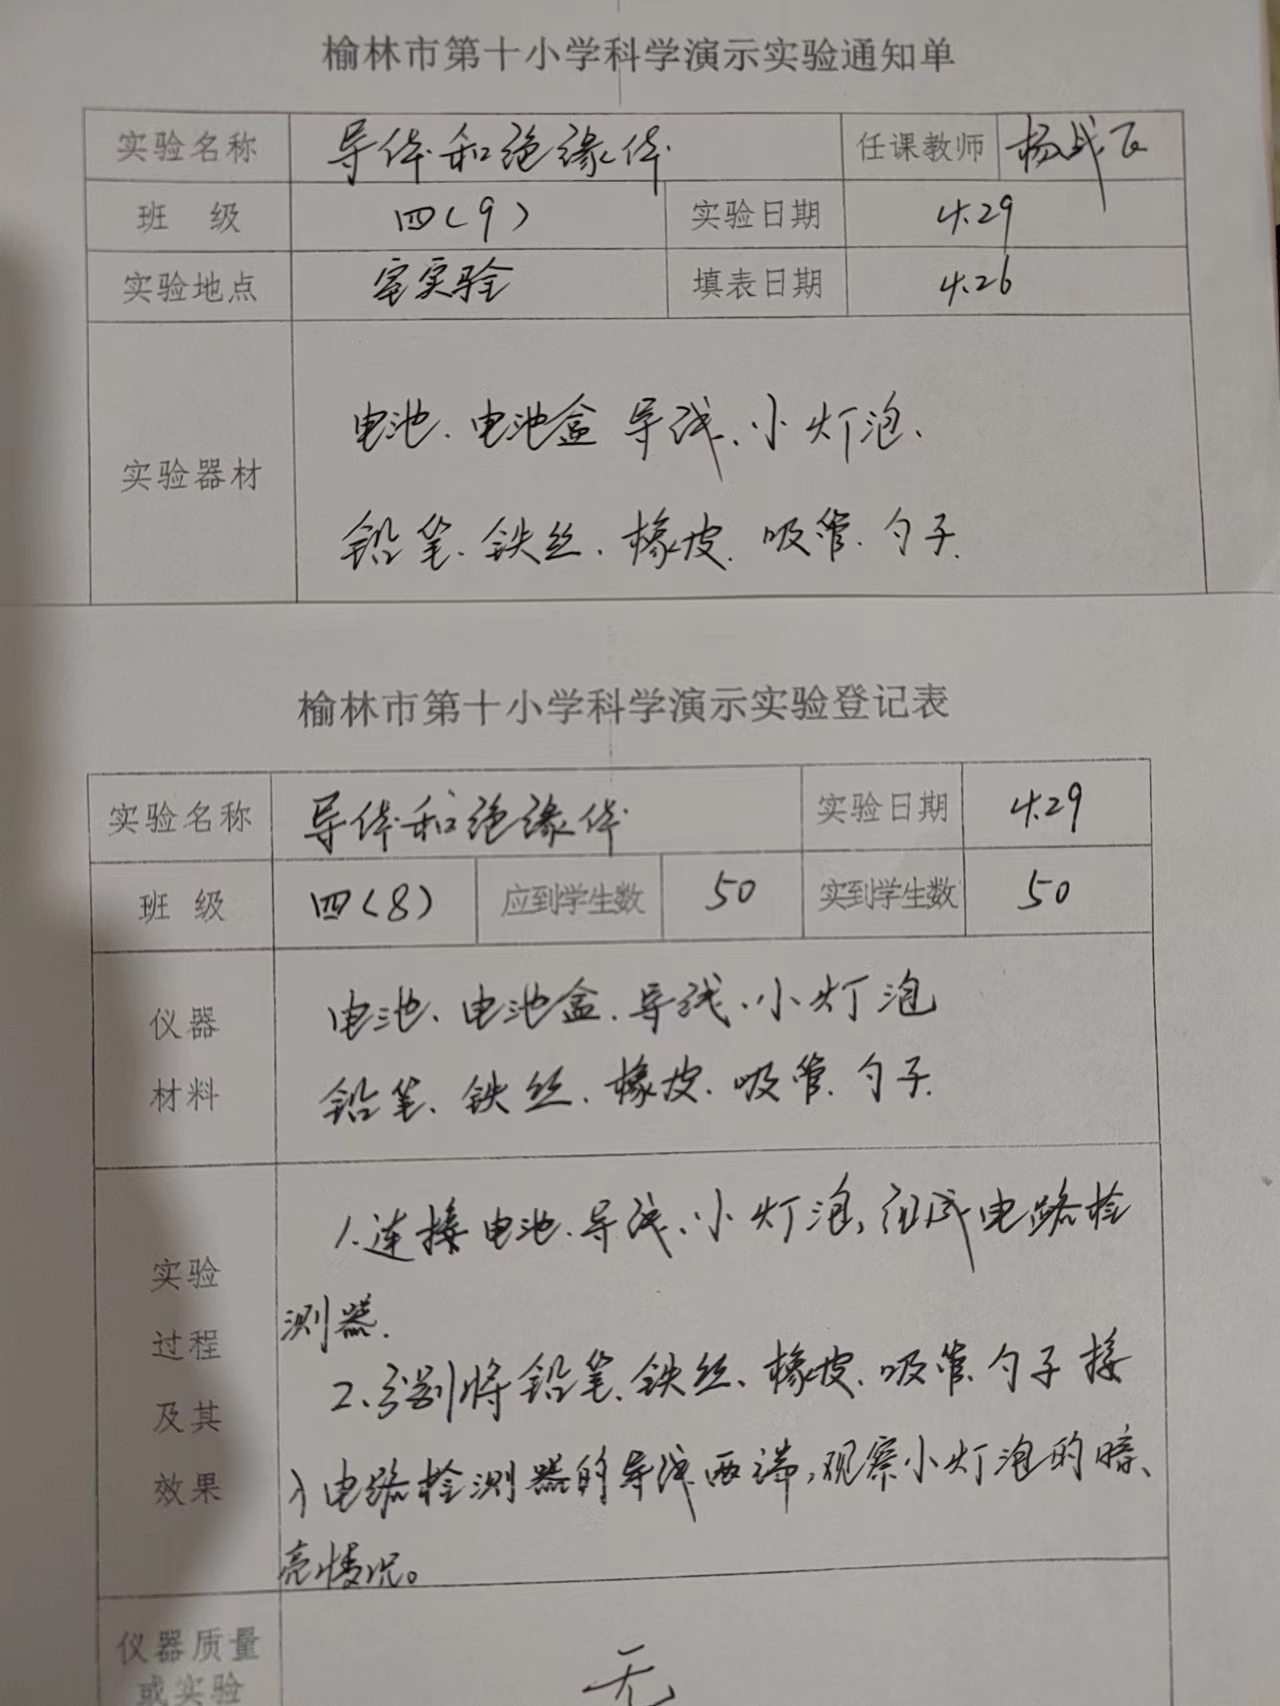 榆林市第十小学科学演示实验通知单
实验名称 导体和绝缘体 任课教师 杨战飞
班 级 四(9) 实验日期 4.29
实验地点 室实验 填表日期 4.26
电池、电池盒 导线、小灯泡、
实验器材
铅笔、铁丝、橡皮、吸管、勺子.
榆林市第十小学科学演示实验登记表
实验名称 导体和绝缘体 实验日期 4.29
班 级 四(8) 应到学生数 50 实到学生数 50
仪器 电池、电池盒、导线、小灯泡
材料 铅笔、铁丝、橡皮、吸管、勺子.
1.连接电池、导线、小灯泡,组成电路检
实验
测器.
过程
2、分别将铅笔、铁丝、橡皮、吸管、勺子接
及其
入电路检测器的导线两端,观察小灯泡的暗、
效果
亮情况。
仪器质量
或实验
无